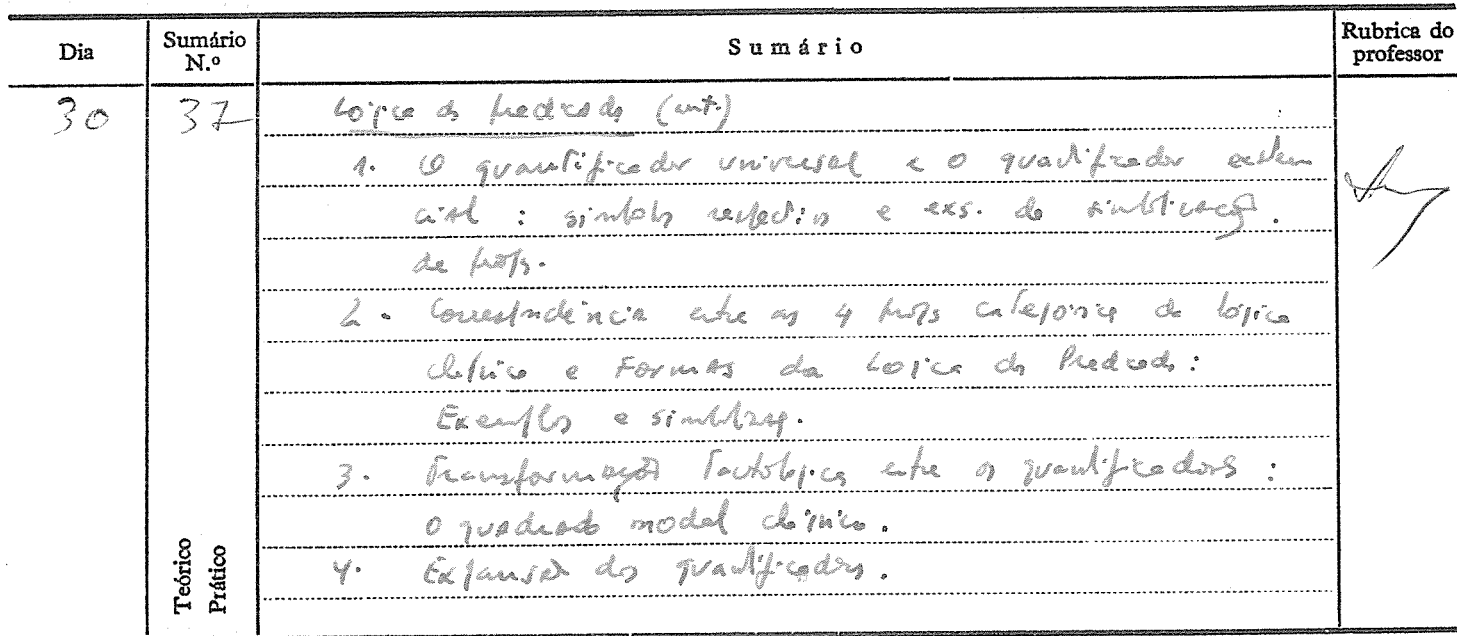 Dia
Sumário N.º
Sumário
Rubrica do professor
30
37
Lógica dos Predicados (cont.)
1. O quantificador universal e o quantificador existen
cial : símbolos respectivos e exs. de simbolização
de props.
2. Correspondência entre as 4 props categóricas da lógica
clássica e Formas da Lógica dos Predicados:
Exemplos e simbolizaç.
3. Transformações Tautológicas entre os quantificadores :
o quadrado modal clássico.
4. Expansão dos quantificadores.
Teórico
Prático